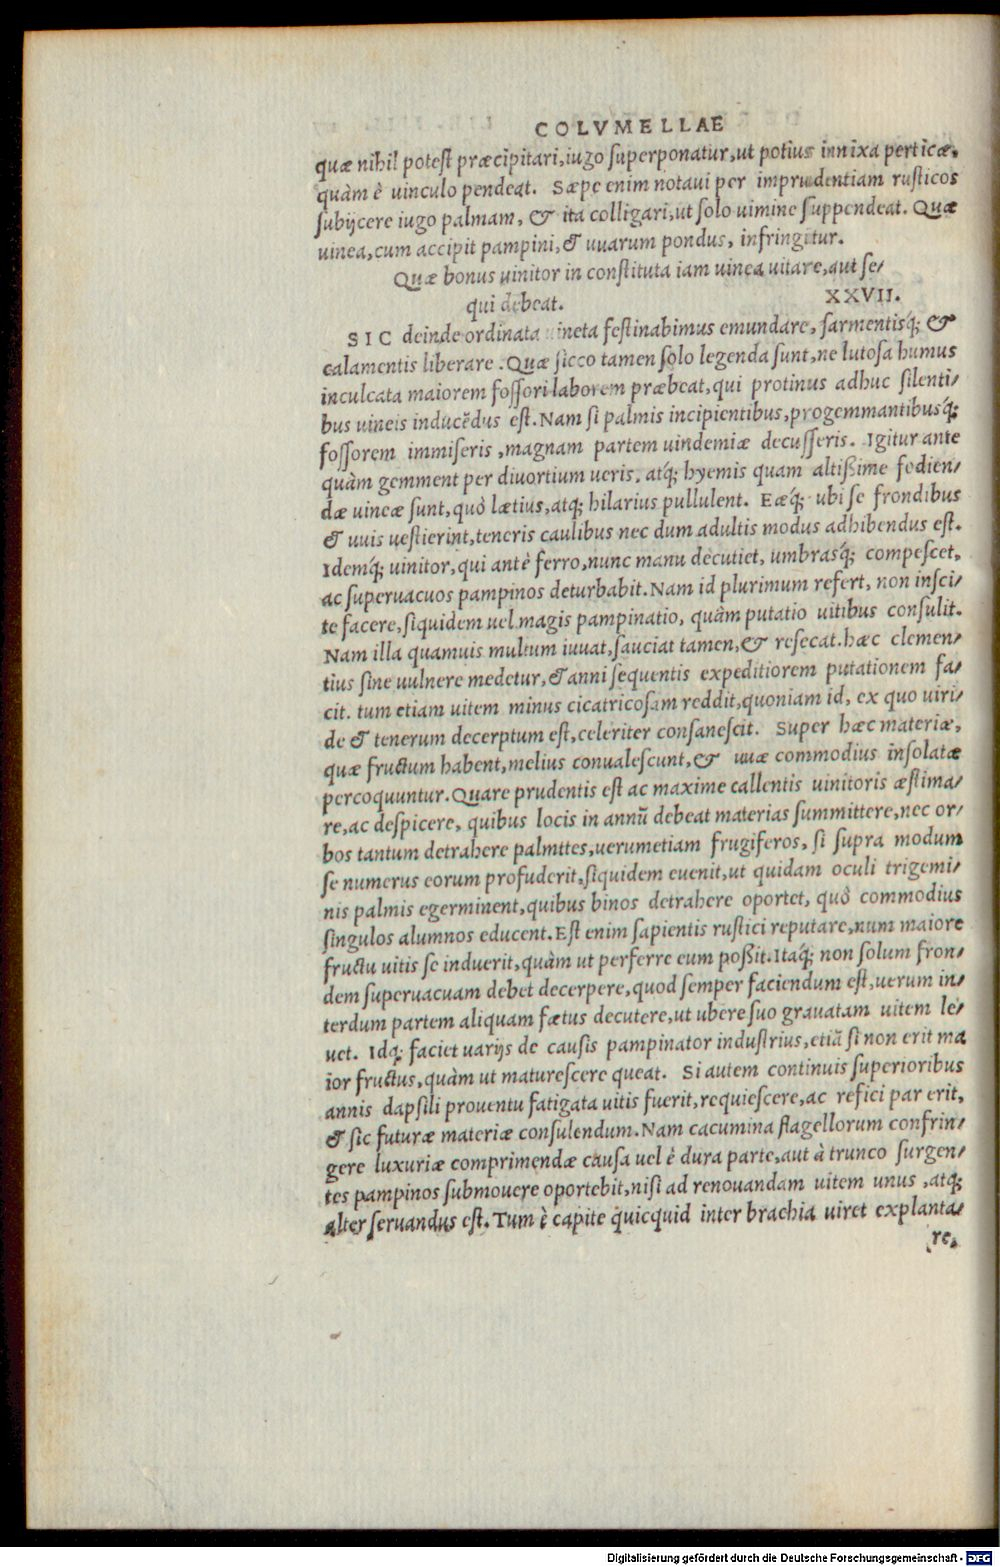 COLVMELLAE
quæ nihil potest præcipitari, iugo superponatur, ut potius innixa perticæ,
quàm è uinculo pendeat. Sæpe enim notaui per imprudentiam rusticos
subijcere iugo palmam, & ita colligari, ut solo uimine suppendeat. Quæ
uinea, cum accipit pampini, & uuarum pondus, infringitur.
Quæ bonus uinitor in constituta iam uinea uitare, aut se/
qui debeat. XXVII.
SIC deinde ordinata uineta festinabimus emundare, sarmentisq́; &
calamentis liberare. Quæ sicco tamen solo legenda sunt, ne lutosa humus
inculcata maiorem fossori laborem præbeat, qui protinus adhuc silenti/
bus uineis inducēdus est. Nam si palmis incipientibus, progemmantibusq́;
fossorem immiseris, magnam partem uindemiæ decusseris. Igitur ante
quàm gemment per diuortium ueris, atq́; hyemis quam altißime fodien/
dæ uineæ sunt, quò lætius, atq́; hilarius pullulent. Eæq́; ubi se frondibus
& uuis uestierint, teneris caulibus nec dum adultis modus adhibendus est.
Idemq́; uinitor, qui antè ferro, nunc manu decutiet, umbrasq́; compescet,
ac superuacuos pampinos deturbabit. Nam id plurimum refert, non insci/
te facere, siquidem uel magis pampinatio, quàm putatio uitibus consulit.
Nam illa quamuis multum iuuat, sauciat tamen, & resecat. hæc clemen/
tius sine uulnere medetur, & anni sequentis expeditiorem putationem fa/
cit. tum etiam uitem minus cicatricosam reddit, quoniam id, ex quo uiri/
de & tenerum decerptum est, celeriter consanescit. Super hæc materiæ,
quæ fructum habent, melius conualescunt, & uuæ commodius insolatæ
percoquuntur. Quare prudentis est ac maxime callentis uinitoris æstima/
re, ac despicere, quibus locis in annū debeat materias summittere, nec or/
bos tantum detrahere palmites, uerumetiam frugiferos, si supra modum
se numerus eorum profuderit, siquidem euenit, ut quidam oculi trigemi/
nis palmis egerminent, quibus binos detrahere oportet, quò commodius
singulos alumnos educent. Est enim sapientis rustici reputare, num maiore
fructu uitis se induerit, quàm ut perferre eum poßit. Itaq́; non solum fron/
dem superuacuam debet decerpere, quod semper faciendum est, uerum in/
terdum partem aliquam fætus decutere, ut ubere suo grauatam uitem le/
uet. Idq́; faciet uarijs de causis pampinator industrius, etiā si non erit ma
ior fructus, quàm ut maturescere queat. Si autem continuis superioribus
annis dapsili prouentu fatigata uitis fuerit, requiescere, ac refici par erit,
& sic futuræ materiæ consulendum. Nam cacumina flagellorum confrin/
gere luxuriæ comprimendæ causa uel è dura parte, aut à trunco surgen/
tes pampinos submouere oportebit, nisi ad renouandam uitem unus, atq́;
alter seruandus est. Tum è capite quicquid inter brachia uiret explanta/
re,
Digitalisierung gefördert durch die Deutsche Forschungsgemeinschaft - DFG